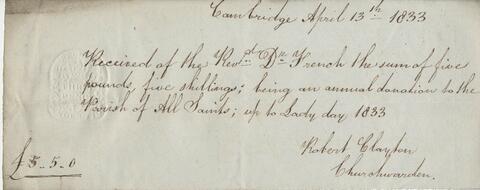 Cambridge April 13th 1833
Received of the Revd. Dr. French the sum of five
pounds, five shillings; being an annual donation to the
Parish of All Saints; up to Lady day 1833
Robert Clayton
Churchwarden.
£5-5-0